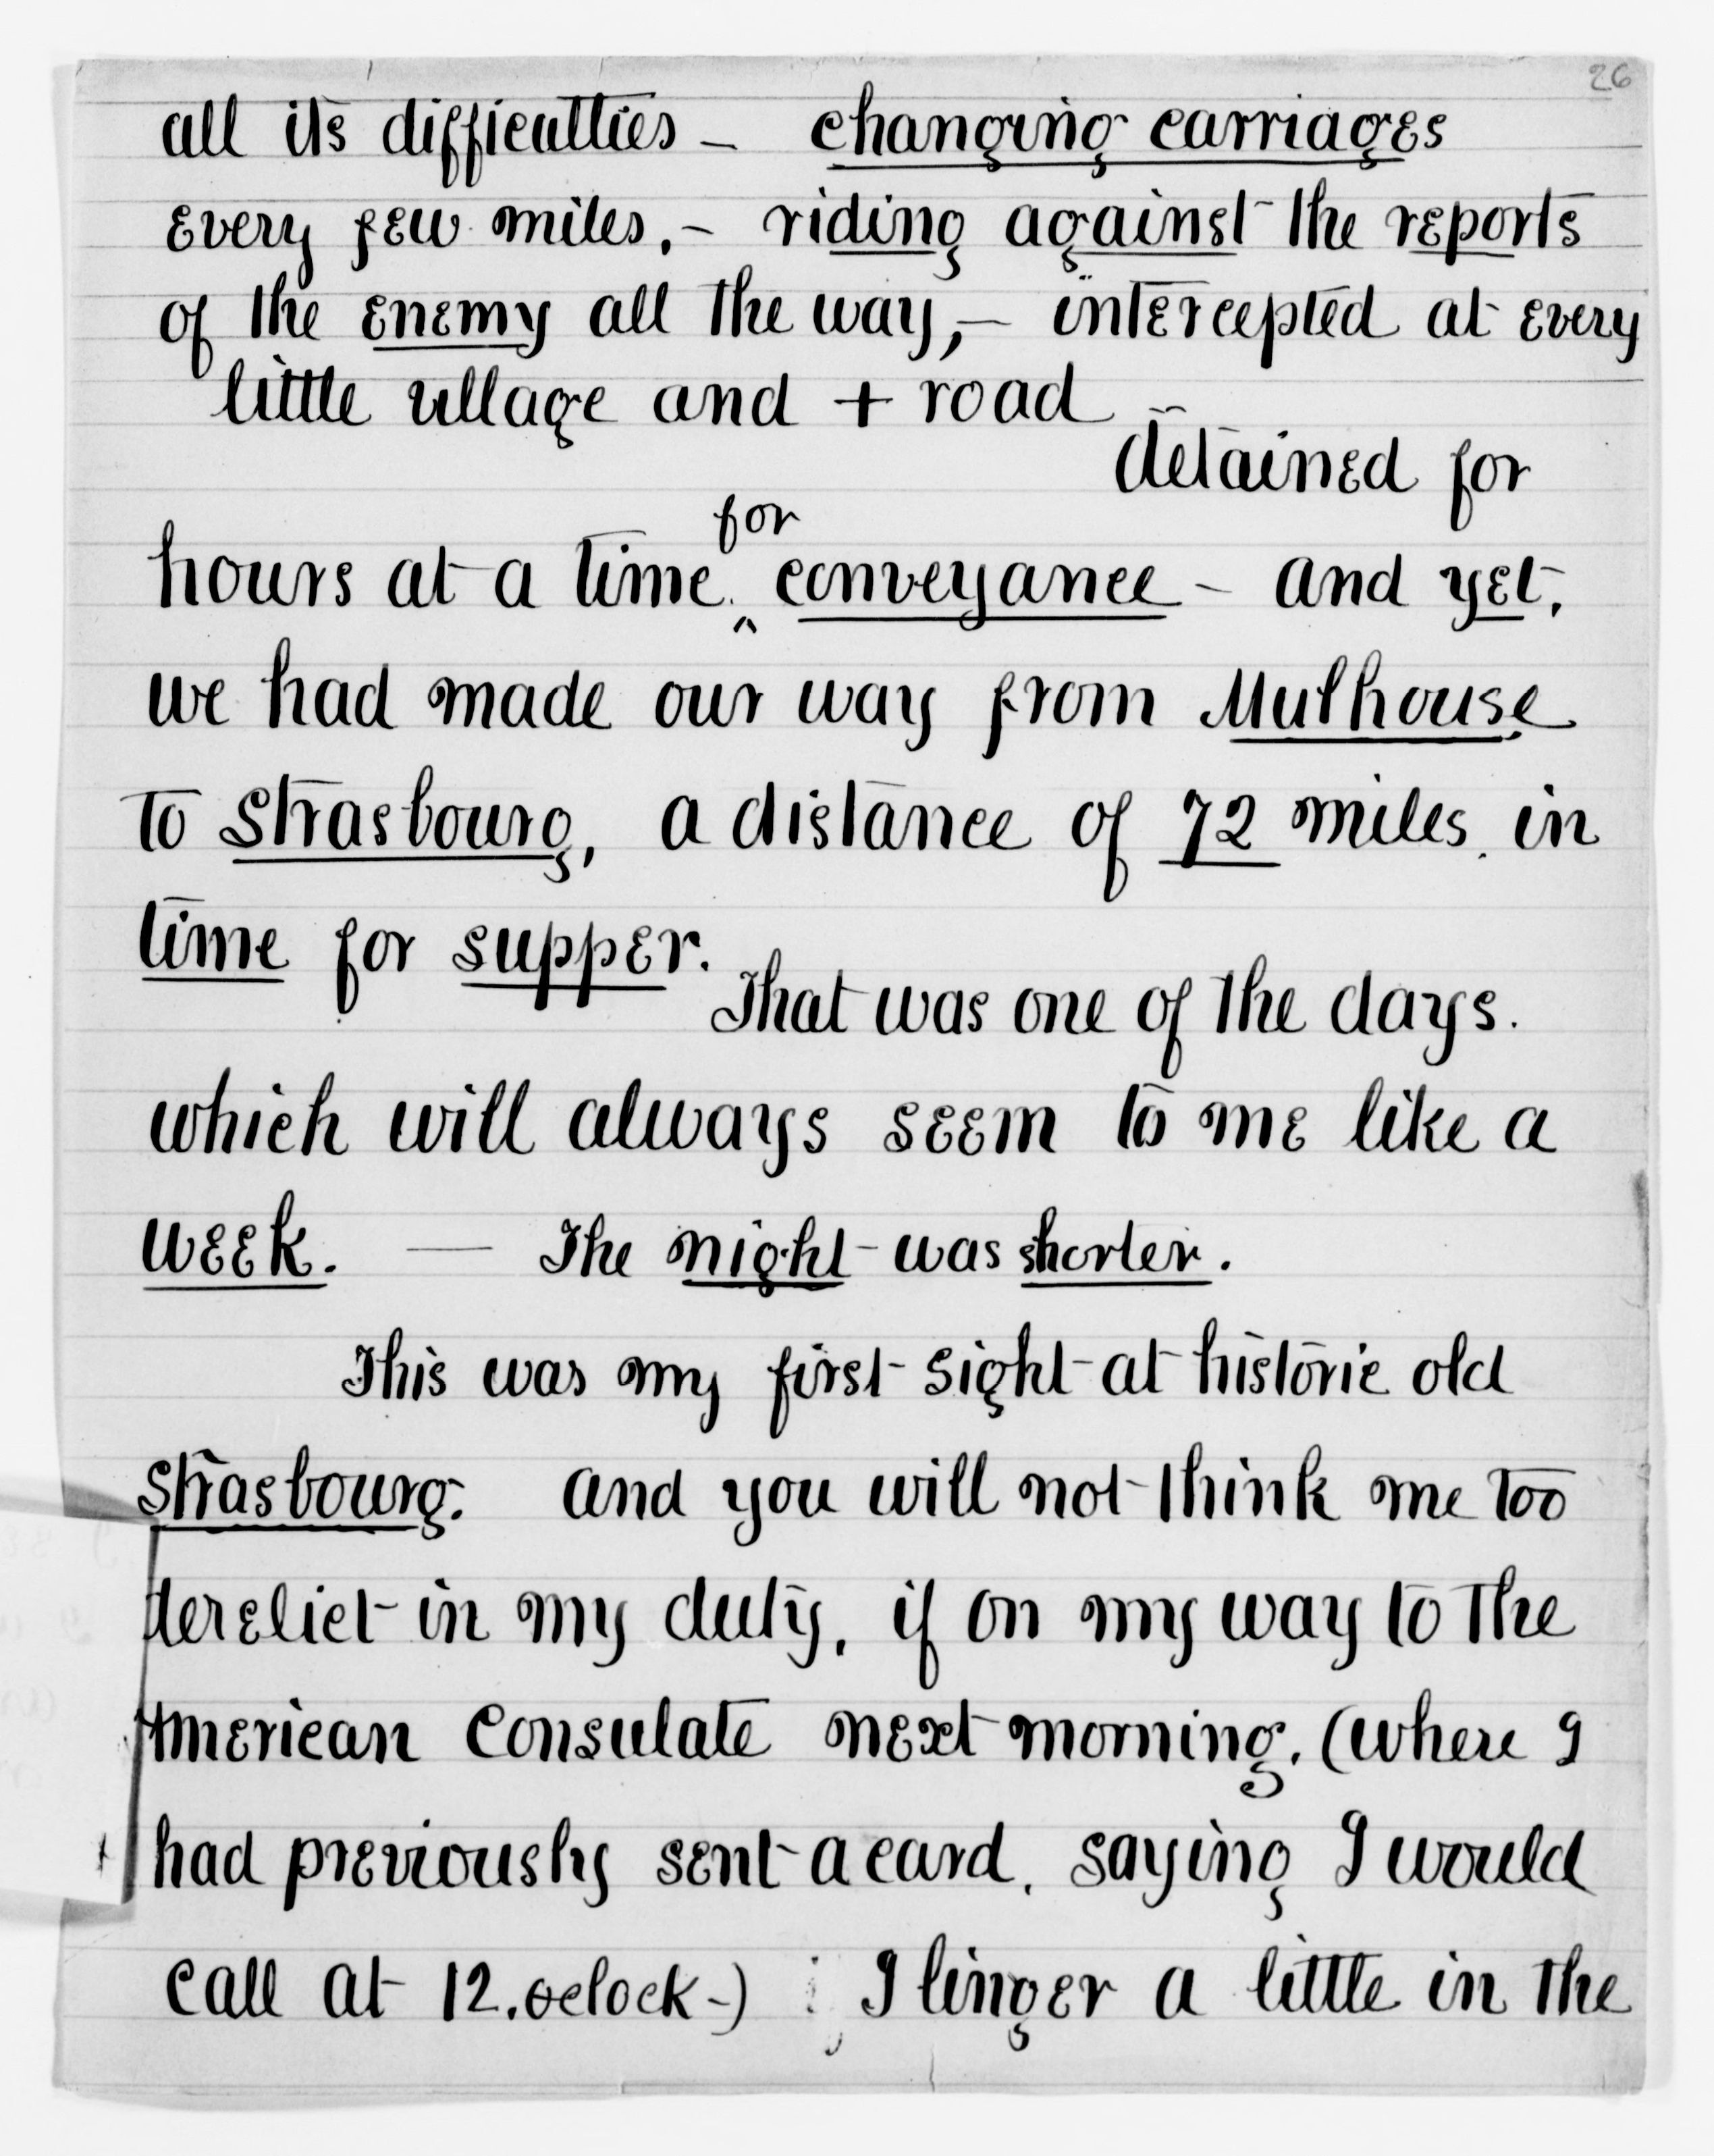 26
all its difficulties – changing carriages
every few miles, – riding against the reports
of the enemy all the way, – intercepted at every
little village and + road –
detained for
for
hours at a time. ^ conveyance – and yet,
we had made our way from Mulhouse
to Strasbourg, a distance of 72 miles. in
time for supper.
That was one of the days.
which will always seem to me like a
week. — The night was shorter.
This was my first sight at historic old
Strasbourg. and you will not think me too
derelict in my duty, if on my way to the
American Consulate next morning, (where I
had previously sent a card, saying I would
call at 12. oclock –) I linger a little in the